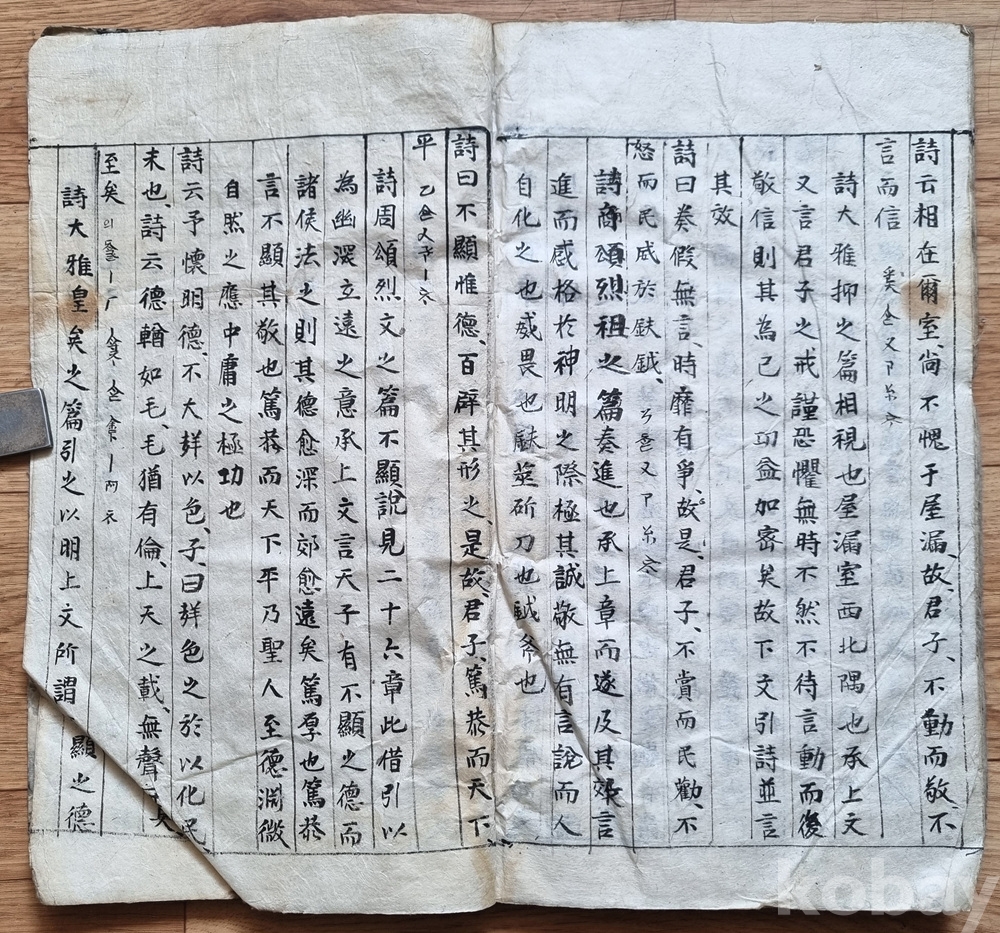 詩云相在爾室、尚不愧于屋漏、故、君子、不動而敬、不
言而信
詩大雅抑之篇相視也屋漏室西北隅也承上文
又言君子之戒謹恐懼無時不然不待言動而後
敬信則其為己之功益加密矣故下文引詩並言
其效
詩曰奏假無言、時靡有爭、故是、君子、不賞而民勸、不
怒而民威於鈇鉞、
詩商頌烈祖之篇奏進也承上章而遂及其效言
進而感格於神明之際極其誠敬無有言說而人
自化之也威畏也鈇莝斫刀也鉞斧也
詩曰不顯惟德、百辟其形之、是故、君子、篤恭而天下
平
詩周頌烈文之篇不顯說見二十六章此借引以
為幽深玄遠之意承上文言天子有不顯之德而
諸侯法之則其德愈深而效愈遠矣篤厚也篤恭
言不顯其敬也篤恭而天下平乃聖人至德淵微
自然之應中庸之極功也
詩云予懷明德、不大聲以色、子、曰聲色之於以化民
末也、詩云德輶如毛、毛猶有倫、上天之載、無聲
至矣
詩大雅皇矣之篇引之以明上文所謂、顯之德
kobay